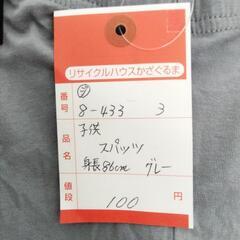 リサイクルハウスかざぐるま
番号 8-433 3
品名 子供
スパッツ
身長86cm グレー
値段 100 円